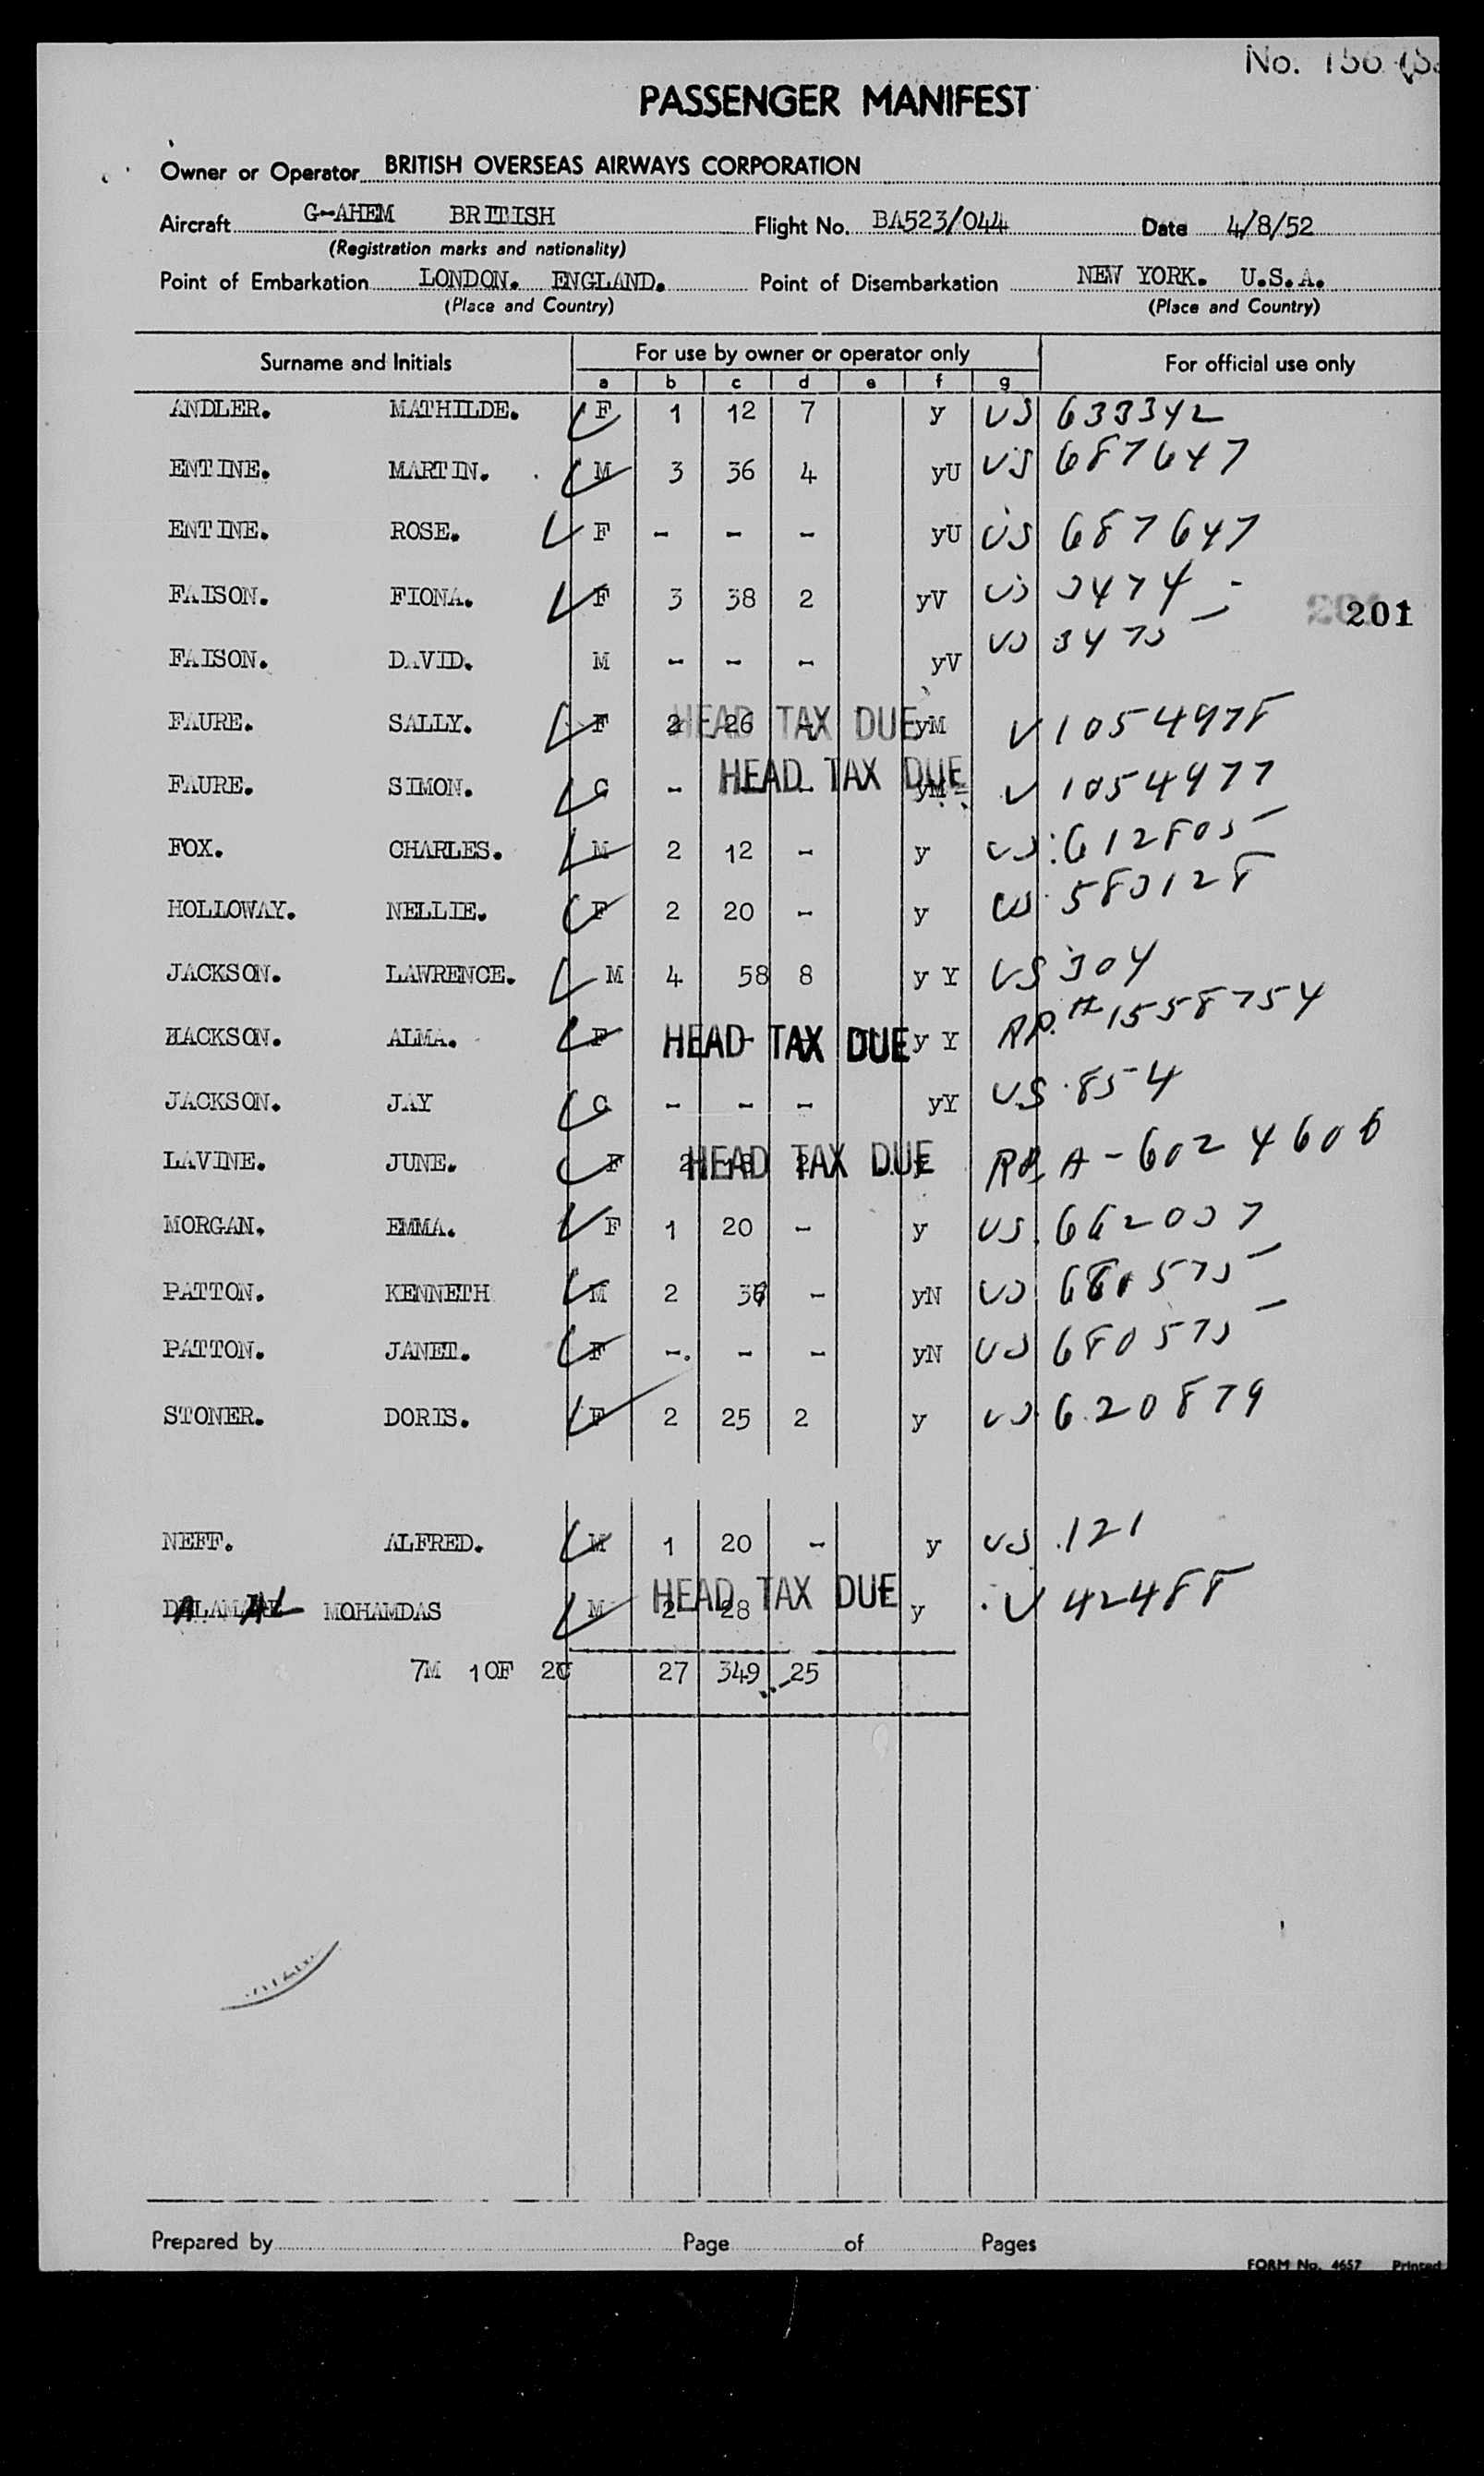 No. 156
PASSENGER MANIFEST
Owner or Operator BRITISH OVERSEAS AIRWAYS CORPORATION
Aircraft G-AHEM BRITISH Flight No. BA523/044 Date 4/8/52
(Registration marks and nationality)
Point of Embarkation LONDON. ENGLAND. Point of Disembarkation NEW YORK. U.S.A.
(Place and Country) (Place and Country)
Surname and Initials For use by owner or operator only For official use only
a b c d e f g
ANDLER. MATHILDE. F 1 12 7 y US 633342
ENTINE. MARTIN. M 3 36 4 yU US 687647
ENTINE. ROSE. F - - - yU US 687647
FAISON. FIONA. F 3 38 2 yV US 3474
201
FAISON. DAVID. M - - - yV US 3475
FAURE. SALLY. F 2 26 - HEAD TAX DUE yM V 1054978
FAURE. SIMON. C - - - HEAD TAX DUE yM V 1054977
FOX. CHARLES. M 2 12 - y US 612805
HOLLOWAY. NELLIE. F 2 20 - y US 583128
JACKSON. LAWRENCE. M 4 58 8 y Y US 304
HACKSON. ALMA. F - HEAD TAX DUE y Y RP. # 1558754
JACKSON. JAY C - - - yY US 854
LAVINE. JUNE. F 2 18 2 HEAD TAX DUE y RP A-6024606
MORGAN. EMMA. F 1 20 - y US 662007
PATTON. KENNETH M 2 36 - yN US 680575
PATTON. JANET. F -. - - yN US 680575
STONER. DORIS. F 2 25 2 y US 620879
NEFF. ALFRED. M 1 20 - y US 121
DALAMAL MOHAMDAS M 2 28 HEAD TAX DUE y V 42488
7M 10F 2C 27 349 25
Prepared by Page of Pages
FORM No. 4657 Printed